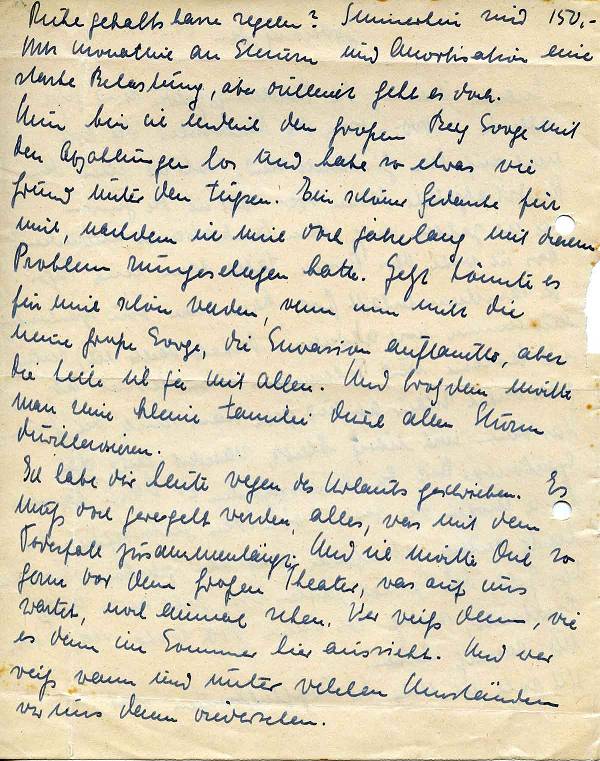 Ruhegehaltskasse regeln? Immerhin sind 150,-
Mk monatlich an Steuern und Amortisation eine
starke Belastung, aber vielleicht geht es doch.
Nun bin ich endlich den großen Berg Sorge mit
den Abzahlungen los und habe so etwas wie
Grund unter den Füßen. Ein schöner Gedanke für
mich, nachdem ich mich doch jahrelang mit diesem
Problem rumgeschlagen hatte. Jetzt könnte es
für mich schön werden, wenn nun nicht die
neue große Sorge, die Invasion auftauchte, aber
die teile ich ja mit allen. Und trotzdem möchte
man seine kleine Familie durch allen Sturm
durchlavieren.
Ich habe dir heute wegen des Urlaubs geschrieben. Es
muß doch geregelt werden, alles, was mit dem
Todesfall zusammenhängt. Und ich möchte Dich so
gern vor dem großen Theater, was auf uns
wartet, noch einmal sehen. Wer weiß denn, wie
es dann im Sommer hier aussieht. Und wer
weiß wann und unter welchen Umständen
wir uns dann wiedersehen.